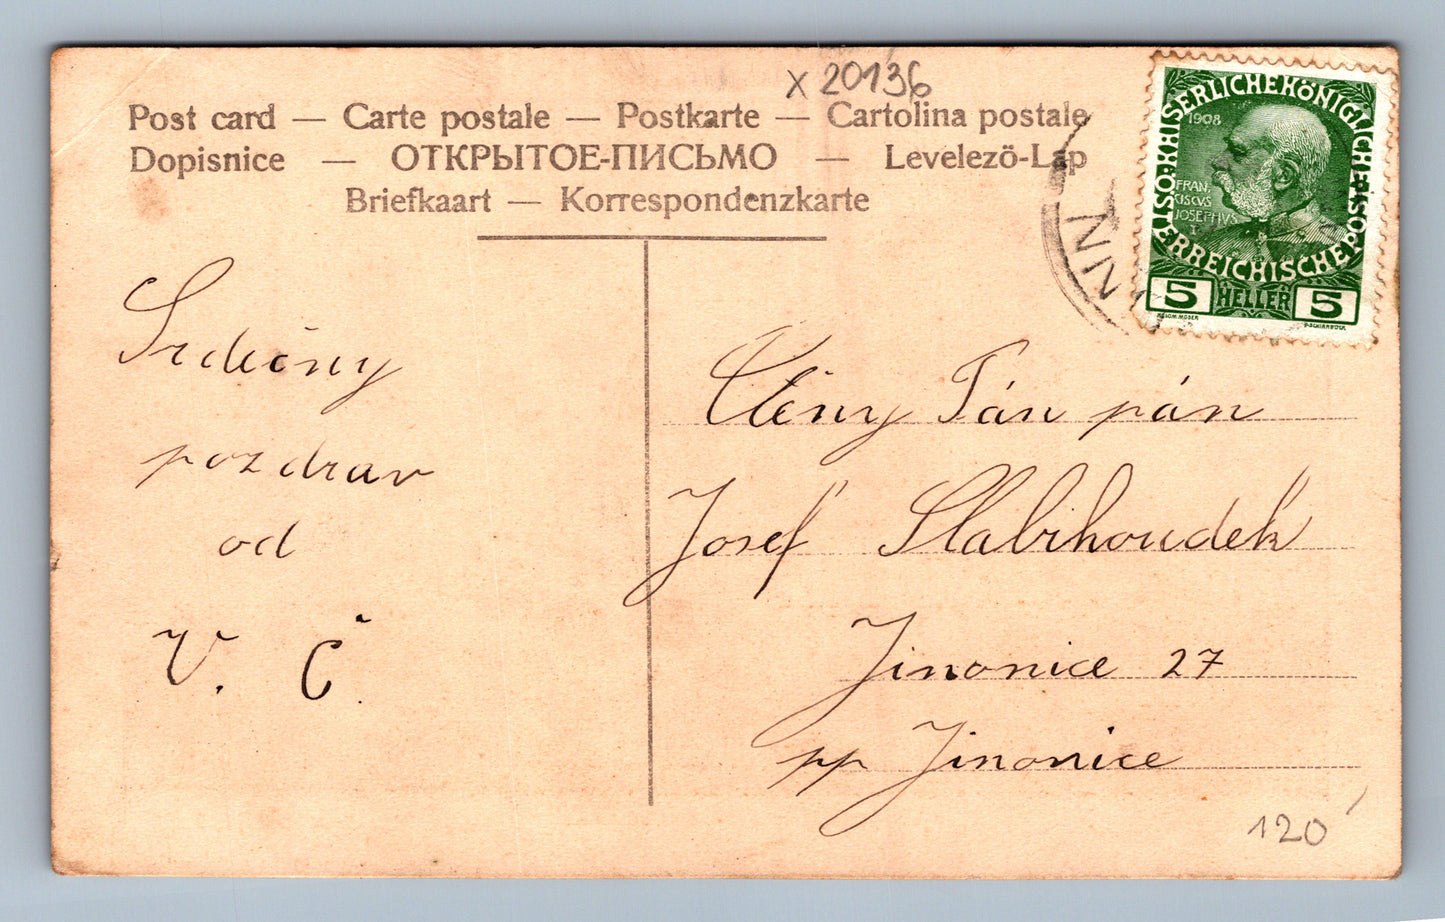 x 20136
Post card — Carte postale — Postkarte — Cartolina postale
Dopisnice — ОТКРЫТОЕ-ПИСЬМО — Levelezö-Lap
Briefkaart — Korrespondenzkarte
KAISERLICHEKÖNIGLICHE
1908
FRAN,
CISCVS
JOSEPHVS
I
ÖSTERREICHISCHE POST
5 HELLER 5
NN
Srdečný
pozdrav
od
V. Č.
Ctěný Pán pán
Josef Slabihoudek
Jinonice 27
pp Jinonice
120